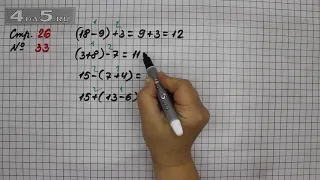 4DA5.RU
Стр. 26
№ 33
(18-9)+3=9+3=12
(3+8)-7=11
15-(7+4)=
15+(13-6)